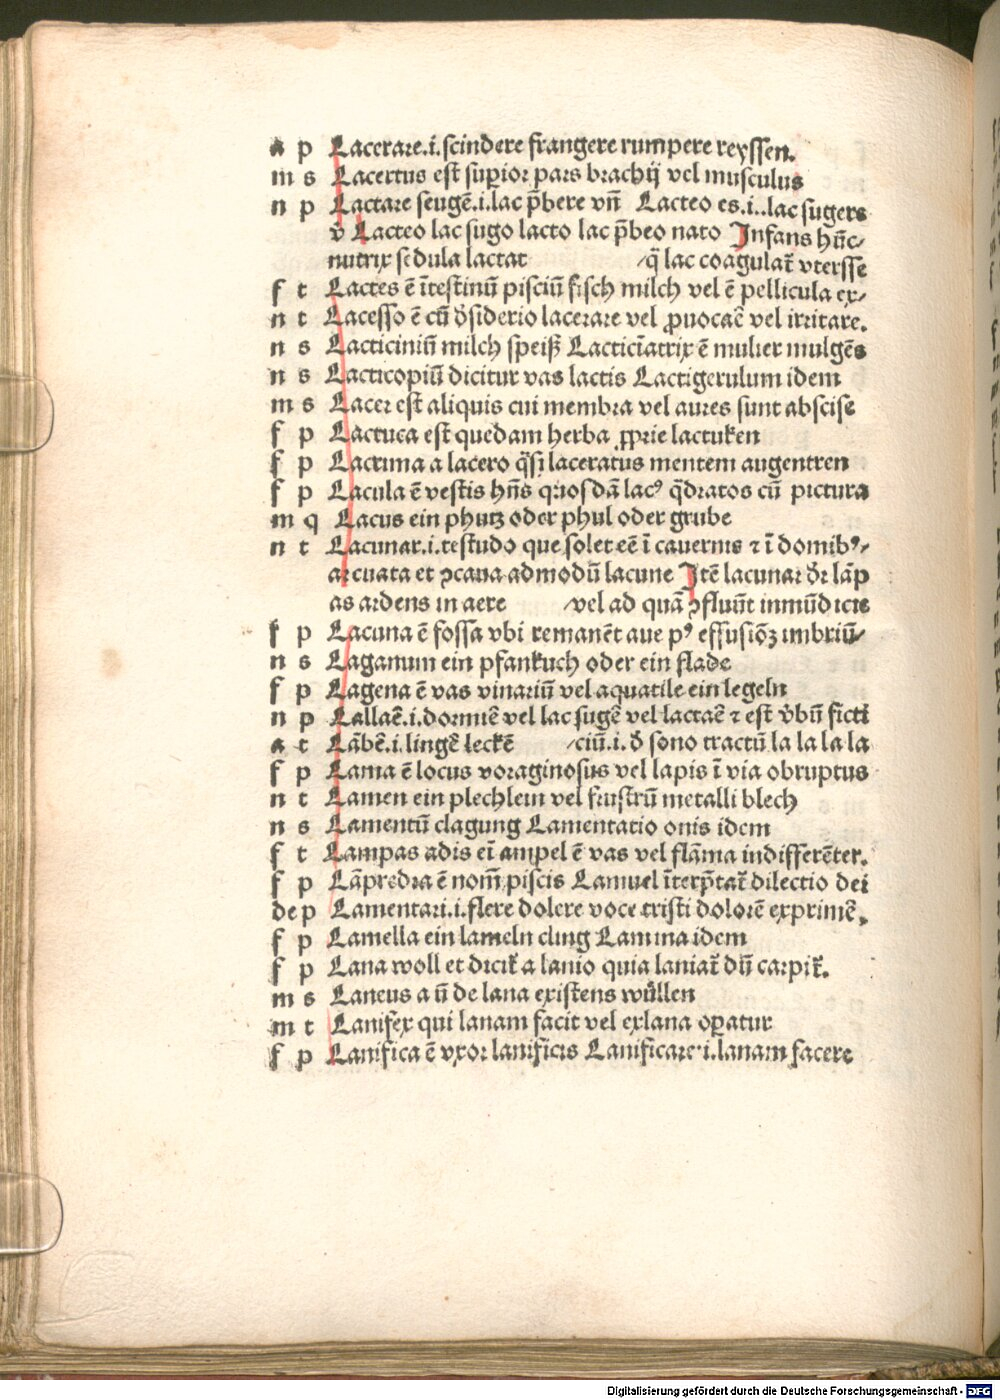 a p Lacerare.i.scindere frangere rumpere reyssen.
m s Lacertus est supior pars brachij vel musculus
n p Lactare seugē.i.lac p̄bere vñ Lacteo es.i..lac sugere
v̄ Lacteo lac sugo lacto lac p̄beo nato Infans hūc⸗
nutrix sedula lactat ⸗q̄ lac coagulat᷑ vtersse
f t Lactes ē ītestinū pisciū fisch milch vel ē pellicula ex⸗
n t Lacesso ē cū d̄siderio lacerare vel ꝓuocaē vel irritare.
n s Lacticiniū milch speiß Lacticīatrix ē mulier mulgēs
n s Lacticopiū dicitur vas lactis Lactigerulum idem
m s Lacer est aliquis cui membra vel aures sunt abscise
f p Lactuca est quedam herba ꝓprie lactuken
f p Lacruma a lacero q̄si laceratus mentem augentren
f p Lacula ē vestis hñs quosdā lacꝰ q̄dratos cū pictura
m q Lacus ein phutz oder phul oder grube
n t Lacunar.i.testudo que solet eē ī cauernis ⁊ ī domibꝰ⸗
arcuata et ꝯcaua admodū lacune Itē lacunar dr̄ lāp
as ardens in aere ⸗vel ad quā ꝯfluūt inmūdicie
f p Lacuna ē fossa vbi remanēt aue pꝰ effusiōꝫ imbriū⸗
n s Laganum ein pfankuch oder ein flade
f p Lagena ē vas vinariū vel aquatile ein legeln
n p Lallaē.i.dormiē vel lac sugē vel lactaē ⁊ est v̄bū ficti
a t Lābē.i.lingē leckē ⸗ciū.i.d̄ sono tractū la la la la
f p Lama ē locus voraginosus vel lapis ī via obruptus
n t Lamen ein plechlein vel frustrū metalli blech
n s Lamentū clagung Lamentatio onis idem
f t Lampas adis eī ampel ē vas vel flāma indifferēter.
f p Lāpredra ē nom̄ piscis Lamuel īterp̄tat᷑ dilectio dei
de p Lamentari.i.flere dolere voce tristi dolorē exprimē.
f p Lamella ein lameln cling Lamina idem
f p Lana woll et dicit᷑ a lanio quia laniat᷑ dū carpit᷑.
m s Laneus a ū de lana existens wůllen
m t Lanifex qui lanam facit vel exlana opatur
f p Lanifica ē vxor lanificis Lanificare.i.lanam facere
Digitalisierung gefördert durch die Deutsche Forschungsgemeinschaft - DFG